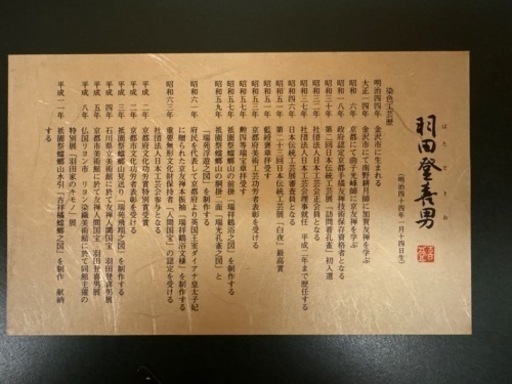 羽田登喜男
はたときお
(明治四十四年一月十四日生)
染色工芸歴
明治四四年 金沢市に生まれる
大正一四年 金沢市にて南野耕月師に加賀友禅を学ぶ
昭和 六年 京都にて曲子光峰師に京友禅を学ぶ
昭和一八年 政府認定京都手描友禅技術保存資格者となる
昭和三〇年 第二回日本伝統工芸展「訪問着孔雀」初入選
昭和三一年 社団法人日本工芸会正会員となる
昭和三七年 社団法人日本工芸会理事就任 平成二年まで歴任する
昭和四六年 日本伝統工芸展審査員となる
昭和五一年 第二十三回日本伝統工芸展「白夜」最高賞
昭和五一年 藍綬褒章拝受す
昭和五三年 京都府美術工芸功労者表彰を受ける
昭和五七年 勲四等瑞宝章拝受す
昭和五七年 祇園祭蟷螂山の前掛「瑞祥鶴浴之図」を制作する
昭和五九年 祇園祭蟷螂山の胴掛二面「瑞光孔雀之図」と
「瑞苑浮遊之図」を制作する
昭和六一年 府民を代表して京都府より英国王室ダイアナ皇太子妃
に贈られた本振袖「瑞祥鶴浴文様」を制作する
昭和六三年 重要無形文化財保持者「人間国宝」の認定を受ける
社団法人日本工芸会参与となる
平成 二年 京都府文化功労賞特別賞受賞
平成 二年 京都市文化功労者表彰を受ける
平成 四年 祇園祭蟷螂山見送り「瑞苑鴛鴦之図」を制作する
平成 四年 石川県立美術館に於て友禅人間国宝 羽田登喜男展
平成 五年 京都市美術館に於て友禅人間国宝 羽田登喜男展
平成 八年 仏国ミュルーズ市
特別展「羽田家のキモノ」展
平成一一年 祇園祭蟷螂山水引「吉祥橘蟷螂之図」を制作 献納
する